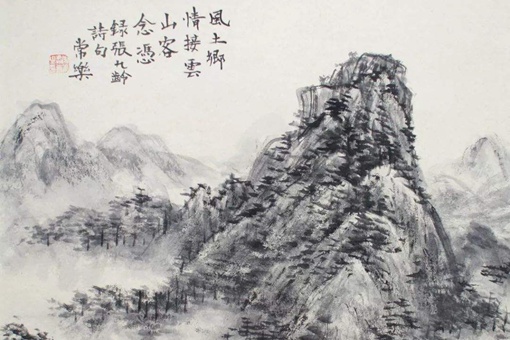 風土鄉
情接雲
山客
念憑
錄張九齡
詩句
常樂